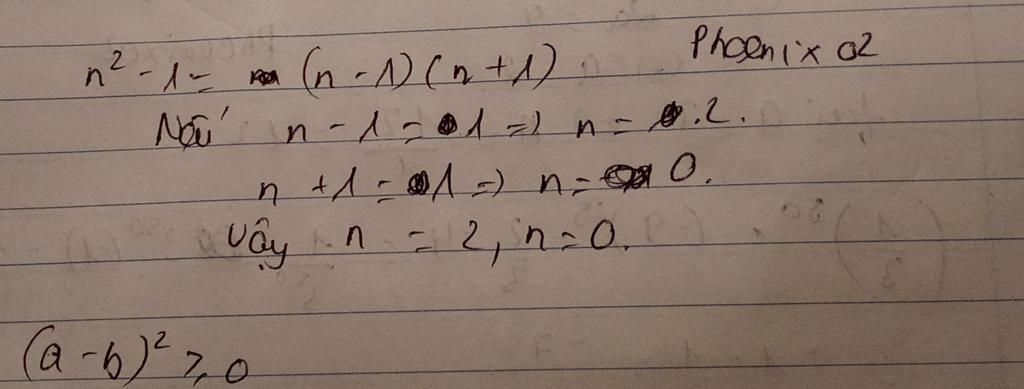 n² - 1 = (n - 1)(n + 1). Phoenix 02
Nếu n - 1 = 1 => n = 2.
n + 1 = 1 => n = 0.
Vậy n = 2, n = 0.
(a - b)² ⩾ 0